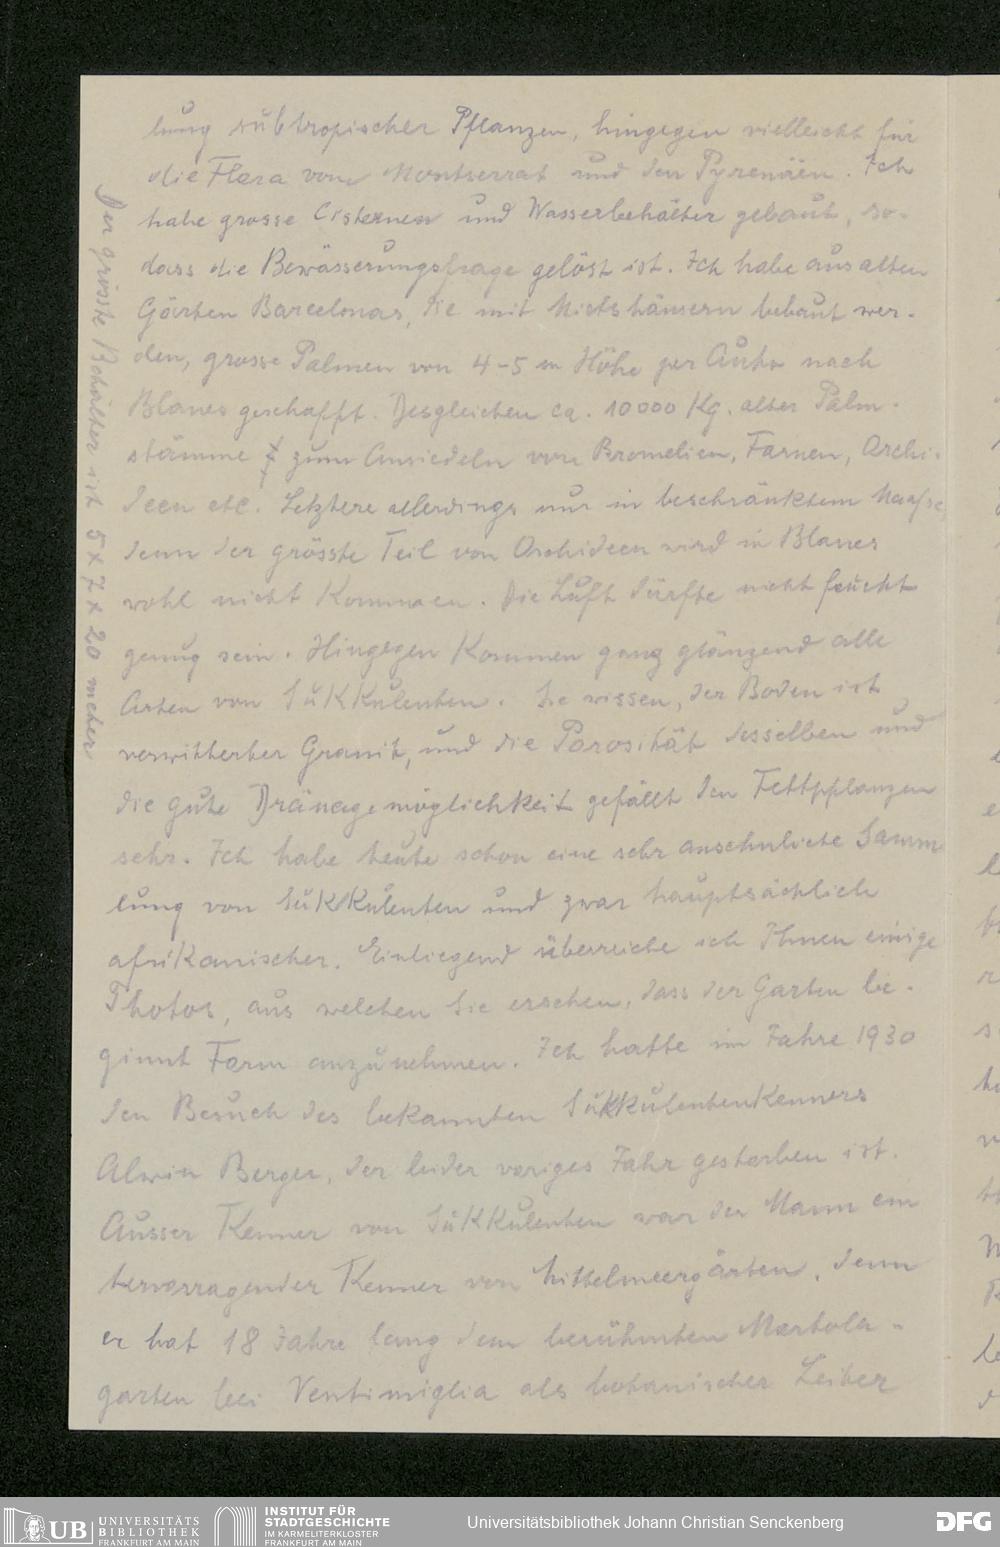 lung subtropischer Pflanzen, hingegen vielleicht für
die Flora vom Montserrat und den Pyrenäen. Ich
habe grosse Cisternen und Wasserbehälter gebaut, so-
dass die Bewässerungsfrage gelöst ist. Ich habe aus alten
Gärten Barcelonas, die mit Mietshäusern bebaut wer-
den, grosse Palmen von 4-5 m Höhe per Auto nach
Blanes geschafft. Desgleichen ca. 10000 Kg. alter Palm-
stämme zum Ansiedeln von Bromelien, Farnen, Orchi-
deen etc. Letztere allerdings nur in beschränktem Maasse,
denn der grösste Teil von Orchideen wird in Blanes
wohl nicht Kommen. Die Luft dürfte nicht feucht
genug sein. Hingegen Kommen ganz glänzend alle
Arten von SuKKulenten. Sie wissen, der Boden ist
verwitterter Granit, und die Porosität desselben und
die gute Dränagemöglichkeit gefällt den Fettpflanzen
sehr. Ich habe heute schon eine sehr ansehnliche Samm-
lung von SuKKulenten und zwar hauptsächlich
afriKanischer. Einliegend überreiche ich Ihnen einige
Photos, aus welchen Sie ersehen, dass der Garten be-
ginnt Form anzunehmen. Ich hatte im Jahre 1930
den Besuch des bekannten SukkulentenKenners
Alwin Berger, der leider voriges Jahr gestorben ist.
Ausser Kenner von SuKKulenten war der Mann ein
hervorragender Kenner von Mittelmeergärten, denn
er hat 18 Jahre lang dem berühmten Mortola-
garten bei Ventimiglia als botanischer Leiter
Der grösste Behälter ist 5 x 7 x 20 meter
UB UNIVERSITÄTS
BIBLIOTHEK
FRANKFURT AM MAIN
INSTITUT FÜR
STADTGESCHICHTE
IM KARMELITERKLOSTER
FRANKFURT AM MAIN
Universitätsbibliothek Johann Christian Senckenberg
DFG